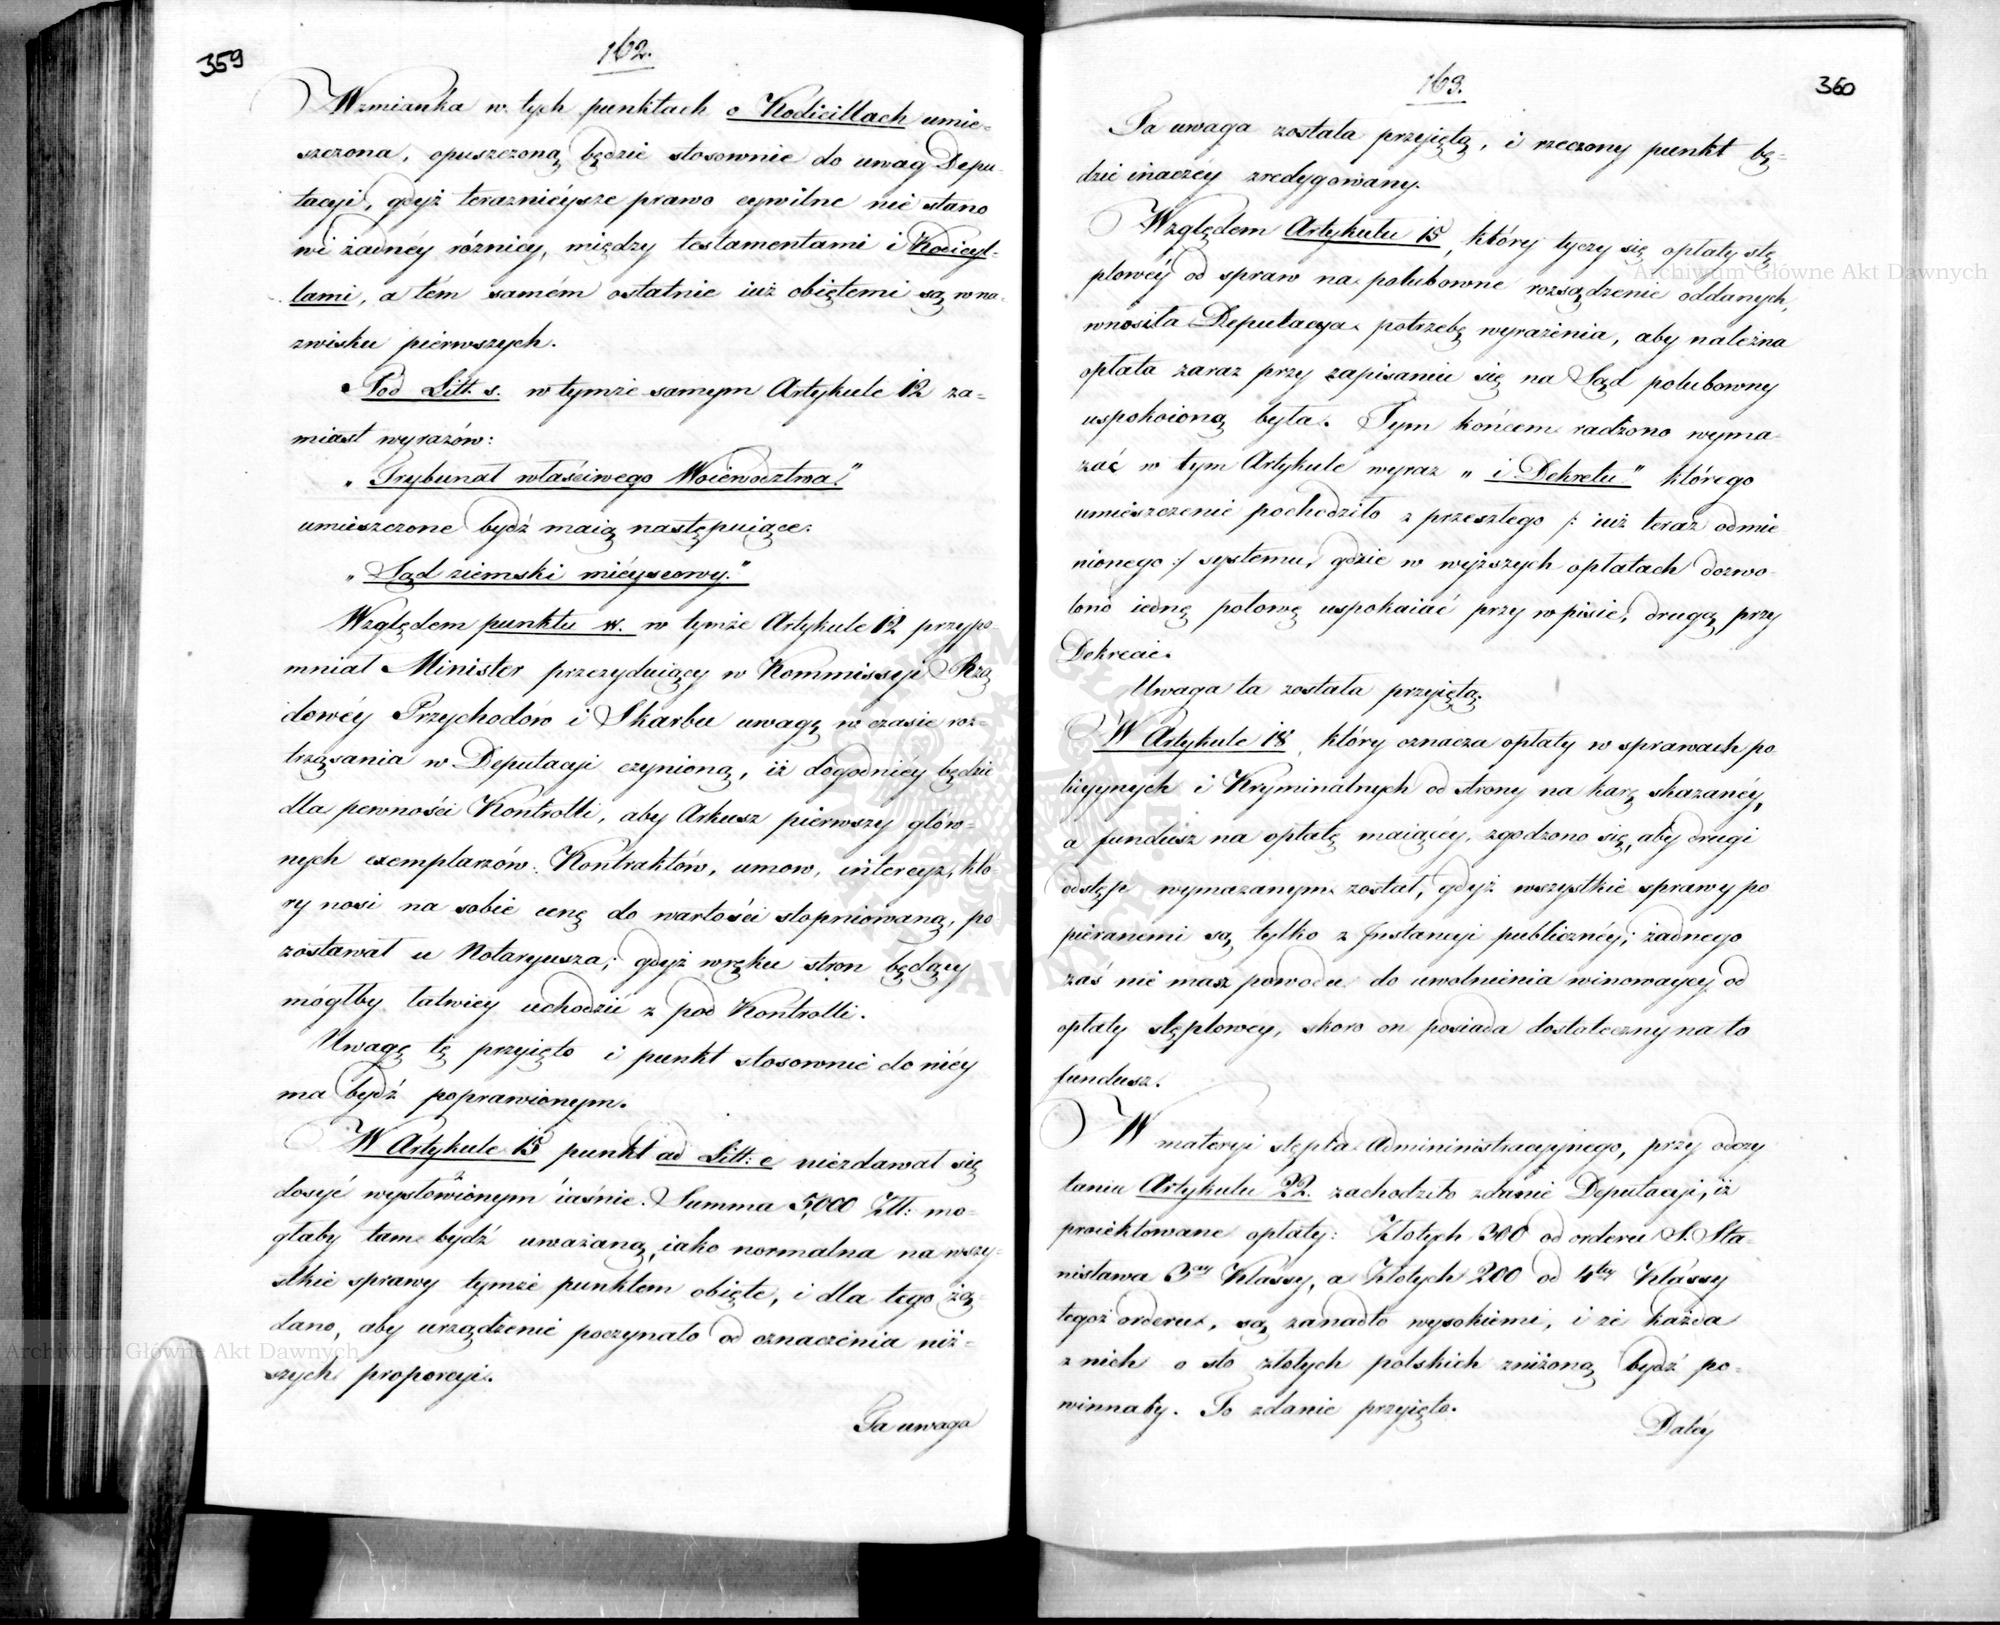 359
162.
Wzmianka w tych punktach o Kodicillach umie-
szczona, opuszczoną będzie stosownie do uwag Depu-
tacyi, gdyż teraznieysze prawo cywilne nie stano
wi żadnéy różnicy, między testamentami i Kodicyl-
lami, a tém samém ostatnie iuż obiętemi są w na-
zwisku piérwszych.
Pod Litt. s. w tymże samym Artykule 12 za-
miast wyrazów:
„Trybunał właściwego Woiewodztwa"
umieszczone bydź maią następuiące:
„Sąd ziemski mieyscowy."
Względem punktu w. w tymże Artykule 12 przypo-
mniał Minister prezyduiący w Kommissyi Rzą
dowéy Przychodów i Skarbu uwagę w czasie roz-
trząsania w Deputacyi czynioną, iż dogodniéy będzie
dla pewności Kontrolli, aby Arkusz pierwszy głów-
nych exemplarzów Kontraktów, umow, intercyz, któ-
ry nosi na sobie cenę do wartości stopniowaną, po-
zostawał u Notaryusza; gdyż w ręku stron będący
mógłby łatwiey uchodzić z pod Kontrolli.
Uwagę tę przyięto i punkt stosownie do niéy
ma bydź poprawionym.
W Artykule 15 punkt ad Litt: e niezdawał się
dosyć wysłowionym iaśnie. Summa 5,000 Złł: mo-
głaby tam bydź uważaną, iako normalna na wszy-
stkie sprawy tymże punktem obięte, i dla tego żą-
dano, aby urządzenie poczynało od oznaczenia niż-
szych proporcyi.
Ta uwaga
360
163.
Ta uwaga została przyiętą, i rzeczony punkt bę-
dzie inaczéy zredygowany.
Względem Artykułu 15, który tyczy się opłaty stę
plowéy od spraw na polubowne rozsądzenie oddanych,
wnosiła Deputacya potrzebę wyrażenia, aby należna
opłata zaraz przy zapisaniu się na Sąd polubowny
uspokoioną była. Tym końcem radzono wyma-
zać w tym Artykule wyraz „i Dekretu" którego
umieszczenie pochodziło z przeszłego /: iuż teraz odmie
nionego :/ systemu, gdzie w wyższych opłatach dozwo-
lono iedną połowę uspokaiać przy wpisie, drugą przy
Dekrecie.
Uwaga ta została przyiętą.
W Artykule 18, który oznacza opłaty w sprawach po
licyynych i Kryminalnych od strony na karę skazanéy,
a fundusz na opłatę maiącéy, zgodzono się, aby drugi
odstęp wymazanym został, gdyż wszystkie sprawy po
pieranemi są tylko z Instancyi publicznéy; żadnego
zaś nie masz powodu do uwolnienia winowaycy od
opłaty stęplowey, skoro on posiada dostateczny na to
fundusz.
W materyi stępla Admininistracyynego, przy odczy
taniu Artykułu 22. zachodziło zdanie Deputacyi, iż
proiektowane opłaty: Złotych 300 od orderu S. Sta-
nisława 3ciey Klassy, a Złotych 200 od 4tey Klassy
tegoż orderu, są zanadto wysokiemi, i że każda
z nich o sto złotych polskich zniżoną bydź po-
winnaby. To zdanie przyięto.
Daléy
Archiwum Główne Akt Dawnych
Archiwum Główne Akt Dawnych